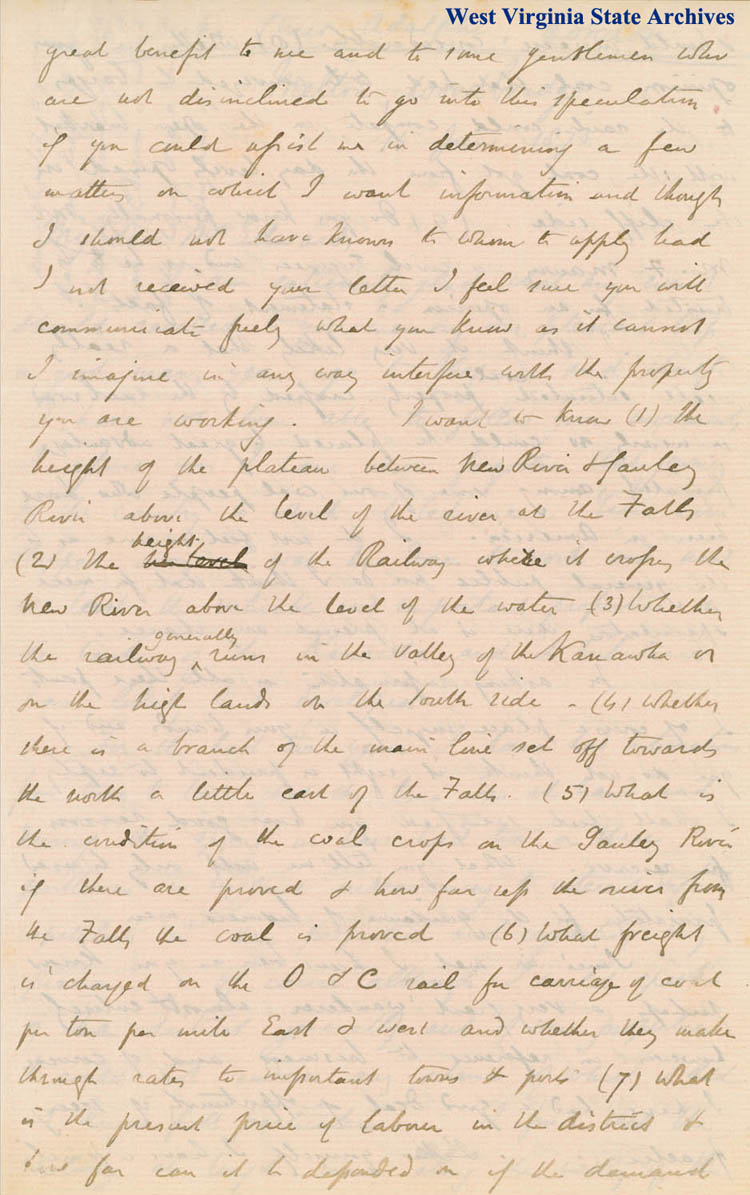 West Virginia State Archives
great benefit to me and to some gentlemen who
are not disinclined to go into this speculation
if you could assist me in determining a few
matters on which I want information and though
I should not have known to whom to apply had
I not received your letter I feel sure you will
communicate freely what you know as it cannot
I imagine in any way interfere with the property
you are working. I want to know (1) the
height of the plateau between New River & Gauley
River above the level of the river at the Falls
(2) the height of the Railway where it crosses the
New River above the level of the water (3) Whether
the railway generally runs in the valley of the Kanawha or
on the high lands on the South side - (4) Whether
there is a branch of the main line set off towards
the north a little east of the Falls. (5) What is
the condition of the coal crops on the Gauley River
if there are proved & how far up the river from
the Falls the coal is proved (6) What freight
is charged on the O & C rail for carriage of coal
per ton per mile East & West and whether they make
through rates to important towns & ports (7) What
is the present price of labour in the district &
how far can it be depended on if the demand